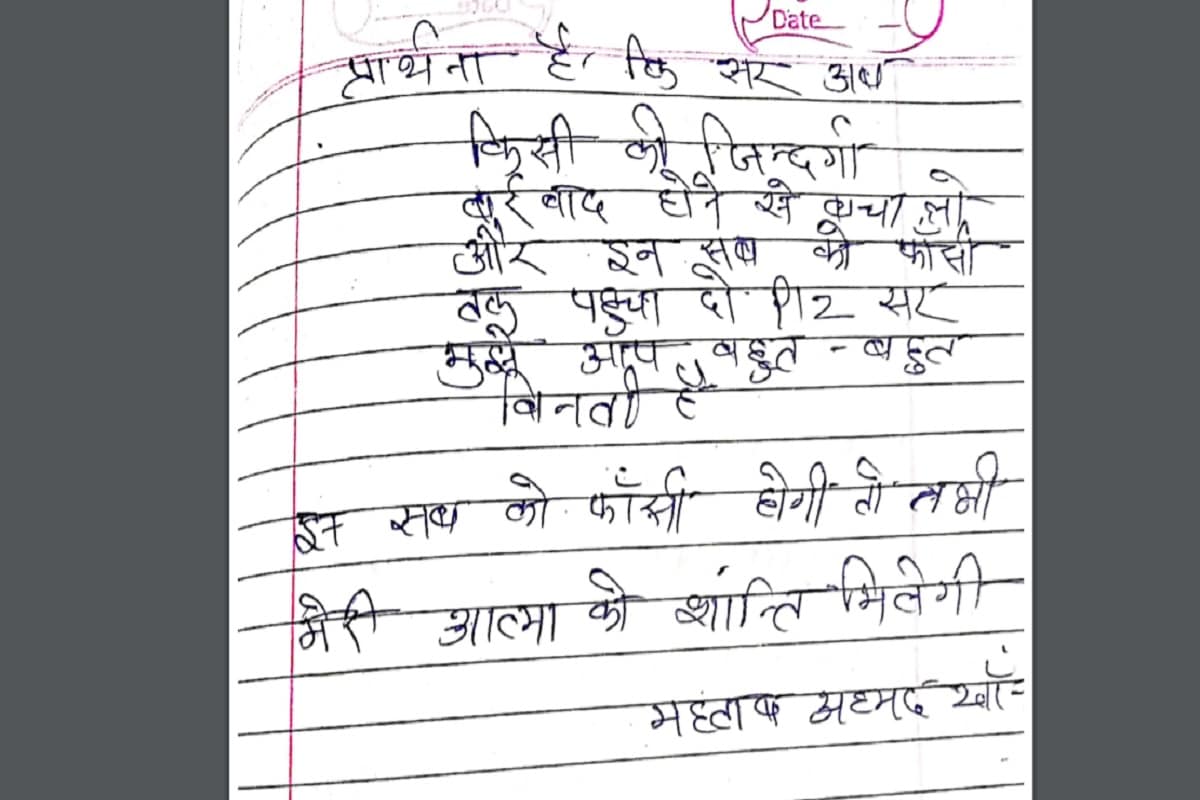 Date
प्रार्थना है कि सर अब
किसी की जिन्दगी
बर्रबाद होने से बचा लो
और इन सब को फाँसी
तक पहुचा दो Plz सर
मुझे आप बहुत - बहुत
विनती है
इन सब को फाँसी होगी तो तभी
मेरी आत्मा को शान्ति मिलेगी
महताब अहमद खाँ